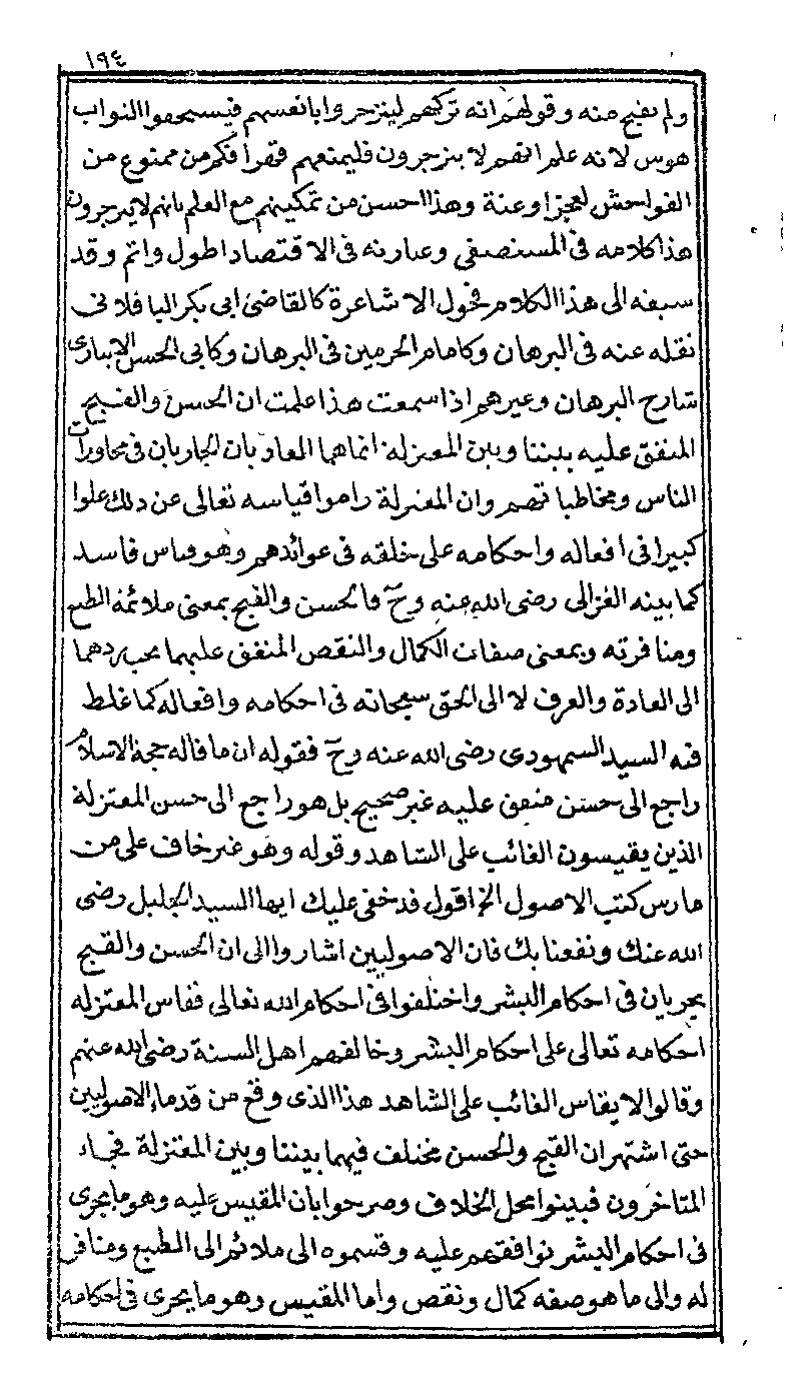 ١٩٤
ولم يقبح منه وقولهم انه تركهم لينزجروا بانفسهم فيستحقوا الثواب
هوس لانه علم انهم لا ينزجرون فليمنعهم قهرا فكم من ممنوع من
الفواحش لعجز او عنة وهذا احسن من تمكينهم مع العلم بانهم لا ينزجرون
هذا كلامه فى المستصفى وعبارته فى الاقتصاد اطول واتم وقد
سبقه الى هذا الكلام فحول الاشاعرة كالقاضى ابى بكر الباقلانى
نقله عنه فى البرهان وكامام الحرمين فى البرهان وكابى الحسن الابيارى
شارح البرهان وغيرهم اذا سمعت هذا علمت ان الحسن والقبيح
المتفق عليه بيننا وبين المعتزلة انما هما العاديان الجاريان فى محاورات
الناس ومخاطباتهم وان المعتزلة راموا قياسه تعالى عن ذلك علوا
كبيرا فى افعاله واحكامه على خلقه فى عوائدهم وهو قياس فاسد
كما بينه الغزالى رضى الله عنه وحّ فالحسن والقبح بمعنى ملائمة الطبع
ومنافرته وبمعنى صفات الكمال والنقص المتفق عليهما يجب ردهما
الى العادة والعرف لا الى الحق سبحانه فى احكامه وافعاله كما غلط
فيه السيد السمهودى رضى الله عنه وحّ فقوله ان ما قاله حجة الاسلام
راجع الى حسن متفق عليه غير صحيح بل هو راجع الى حسن المعتزلة
الذين يقيسون الغائب على الشاهد وقوله وهو غير خاف على من
مارس كتب الاصول الخ اقول قد خفى عليك ايها السيد الجليل رضى
الله عنك ونفعنا بك فان الاصوليين اشاروا الى ان الحسن والقبح
يجريان فى احكام البشر واختلفوا فى احكام الله تعالى فقاس المعتزله
احكامه تعالى على احكام البشر وخالفهم اهل السنة رضى الله عنهم
وقالوا لا يقاس الغائب على الشاهد هذا الذى وقع من قدماء الاصوليين
حتى اشتهر ان القبح والحسن مختلف فيهما بيننا وبين المعتزلة فجاء
المتاخرون فبينوا محل الخلاف وصرحوا بان المقيس عليه وهو ما يجرى
فى احكام البشر نوافقهم عليه وقسموه الى ملائم الى الطبع ومنافر
له والى ما هو صفه كمال ونقص واما المقيس وهو ما يجرى فى احكامه